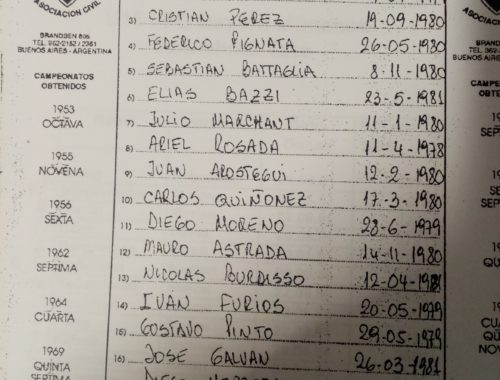 ASOCIACION CIVIL
BRANDSEN 805
TEL. 362-2152 / 2361
BUENOS AIRES - ARGENTINA
CAMPEONATOS
OBTENIDOS
1953
OCTAVA
1955
NOVENA
1956
SEXTA
1962
SEPTIMA
1964
CUARTA
1969
QUINTA
SEPTIMA
3) CRISTIAN PÉREZ 19-09-1980
4) FEDERICO PIGNATA 26-05-1980
5) SEBASTIAN BATTAGLIA 8-11-1980
6) ELIAS BAZZI 23-5-1981
7) JULIO MARCHANT 11-1-1980
8) ARIEL ROSADA 11-4-1978
9) JUAN AROSTEGUI 12-2-1980
10) CARLOS QUIÑONEZ 17-3-1980
11) DIEGO MORENO 28-6-1979
12) MAURO ASTRADA 14-11-1980
13) NICOLAS BURDISSO 12-04-1981
14) IVAN FURIOS 20-05-1979
15) GUSTAVO PINTO 29-05-1979
16) JOSE GALVAN 26-03-1981
DIEGO
ASOCI
BRA
TEL. 3
BUENOS A
CAMPE
OBTE